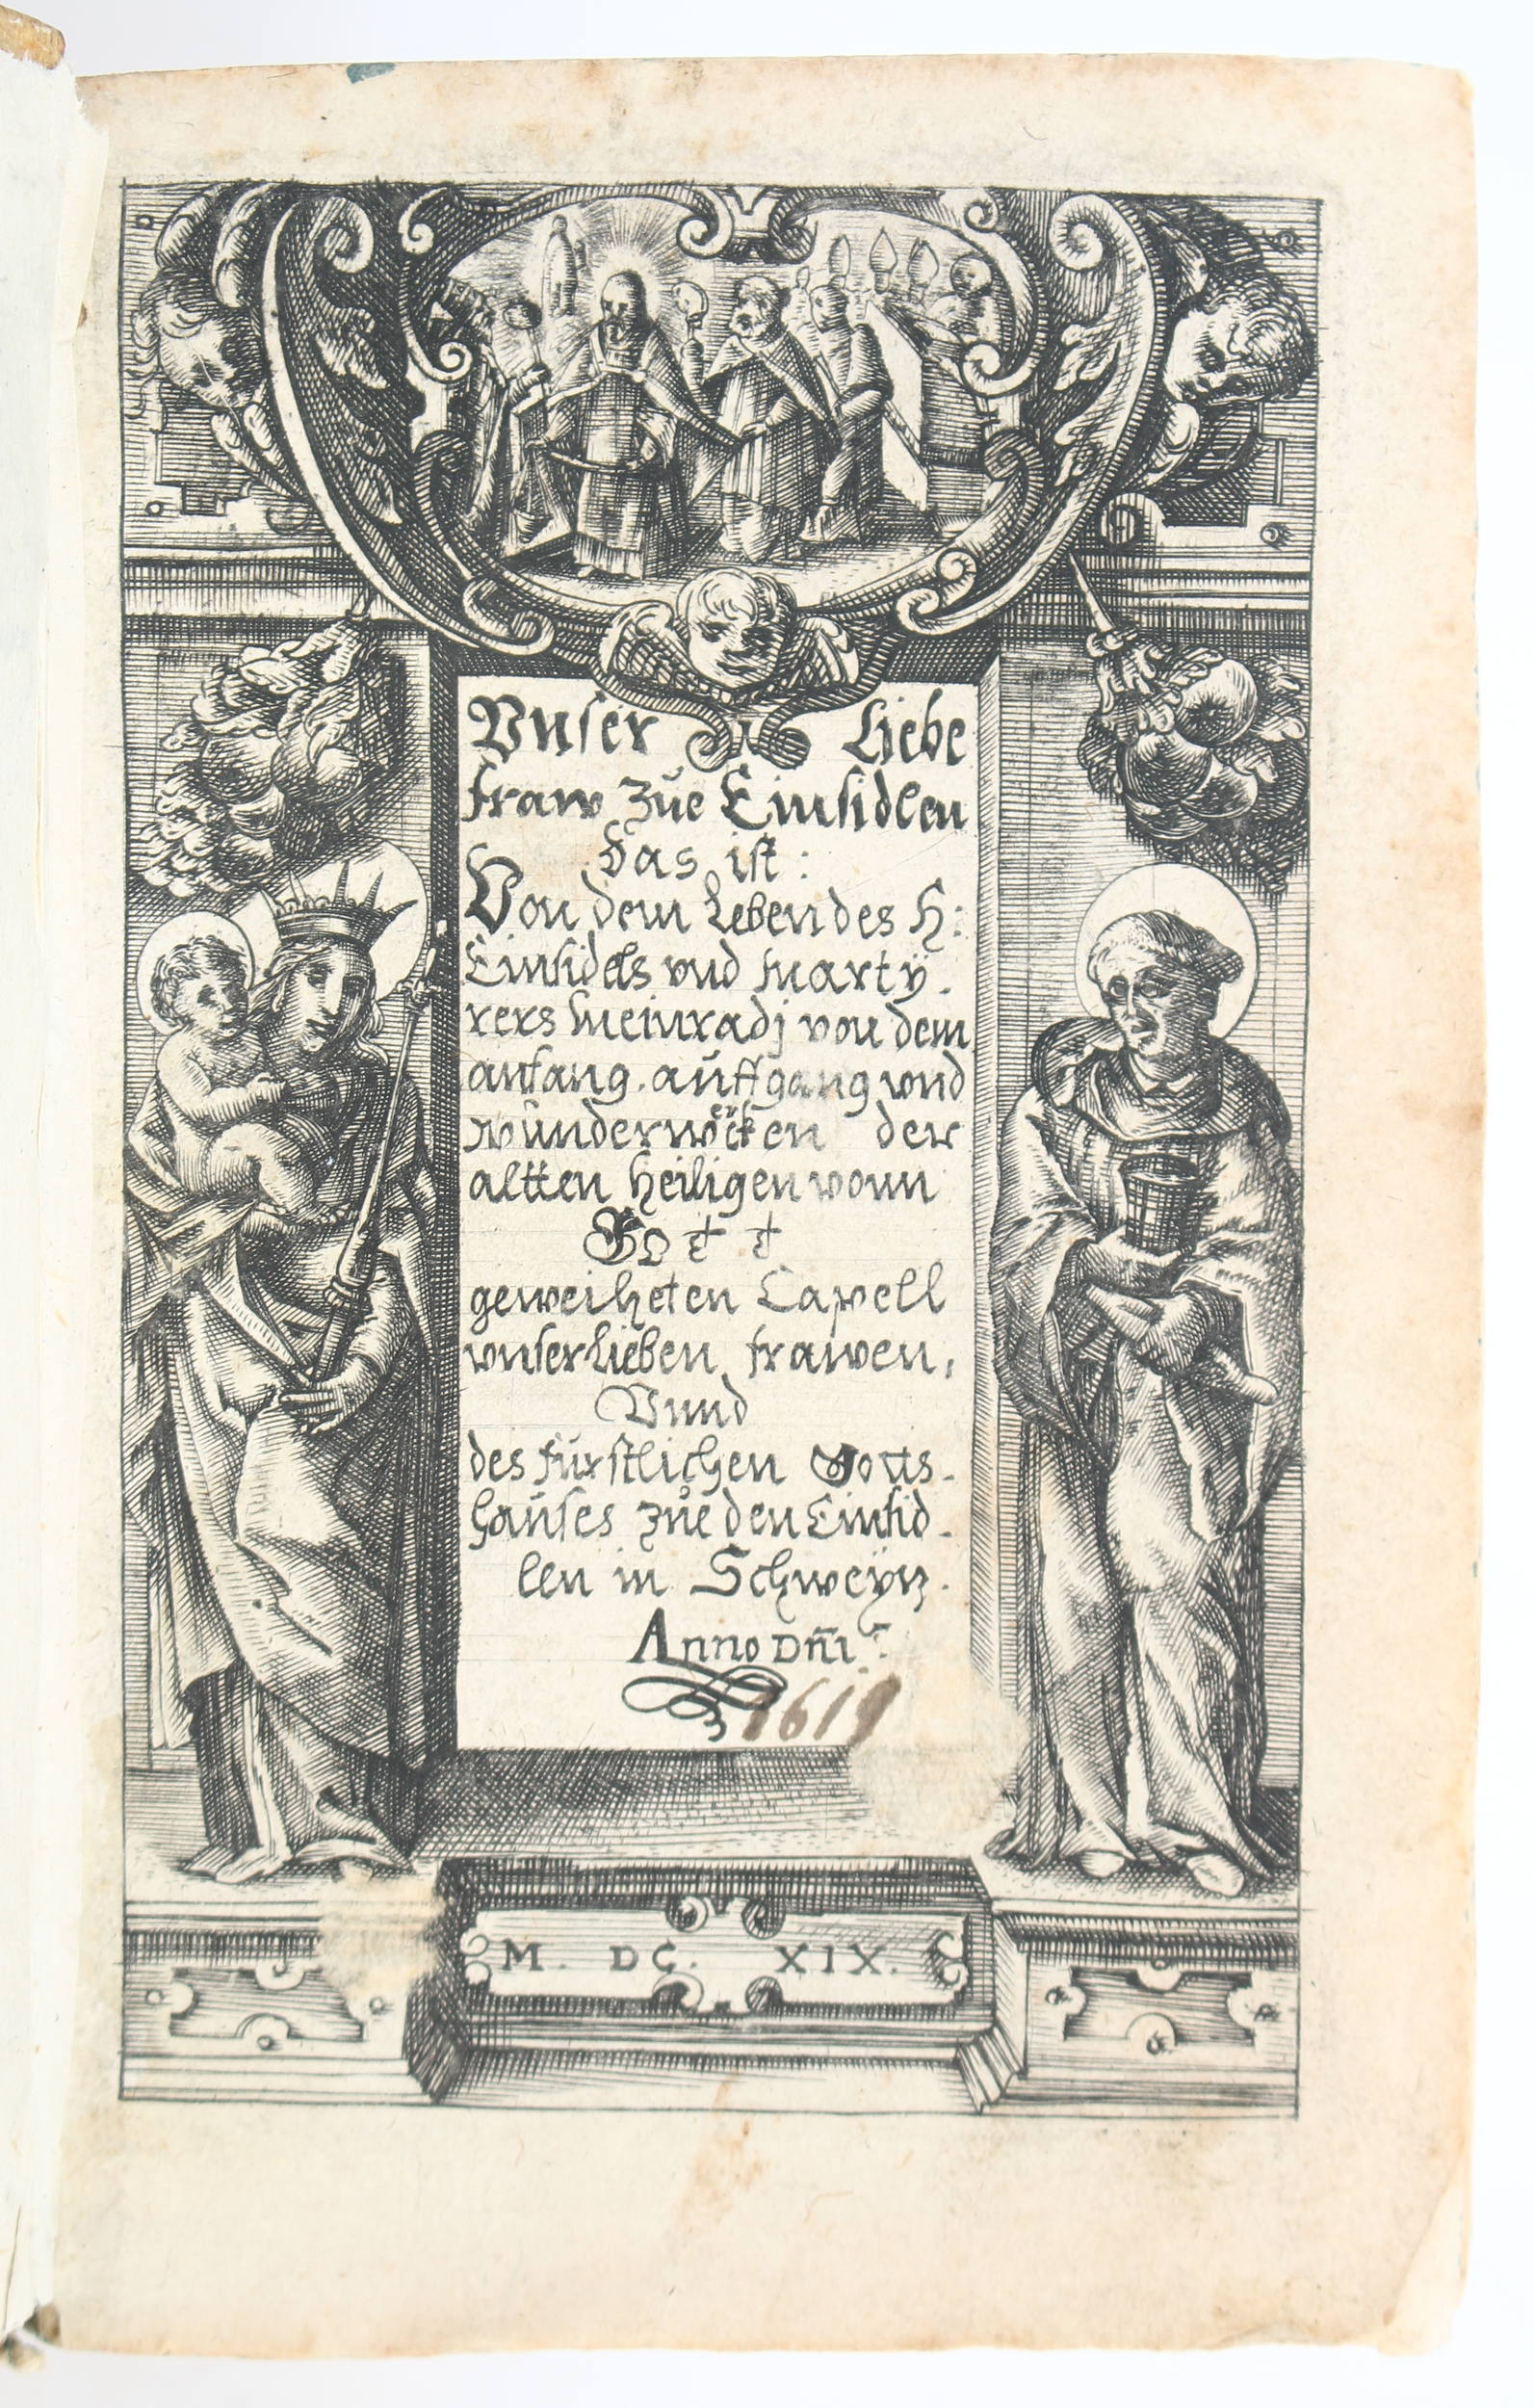 Vnser Liebe
fraw zŭe Einsidlen
Das ist:
Von dem Leben des H:
Einsidels vnd marty̆-
rers Meinradj von dem
anfang, aŭffgang vnd
wŭnderwercken der
altten heiligen vonn
GOtt
geweiheten Capell
vnser lieben frawen,
Vnnd
des fürstlichen Gotts-
haŭses zŭe den Einsid-
len in Schweÿtz.
Anno Dñi.
1619
M. DC. XIX.